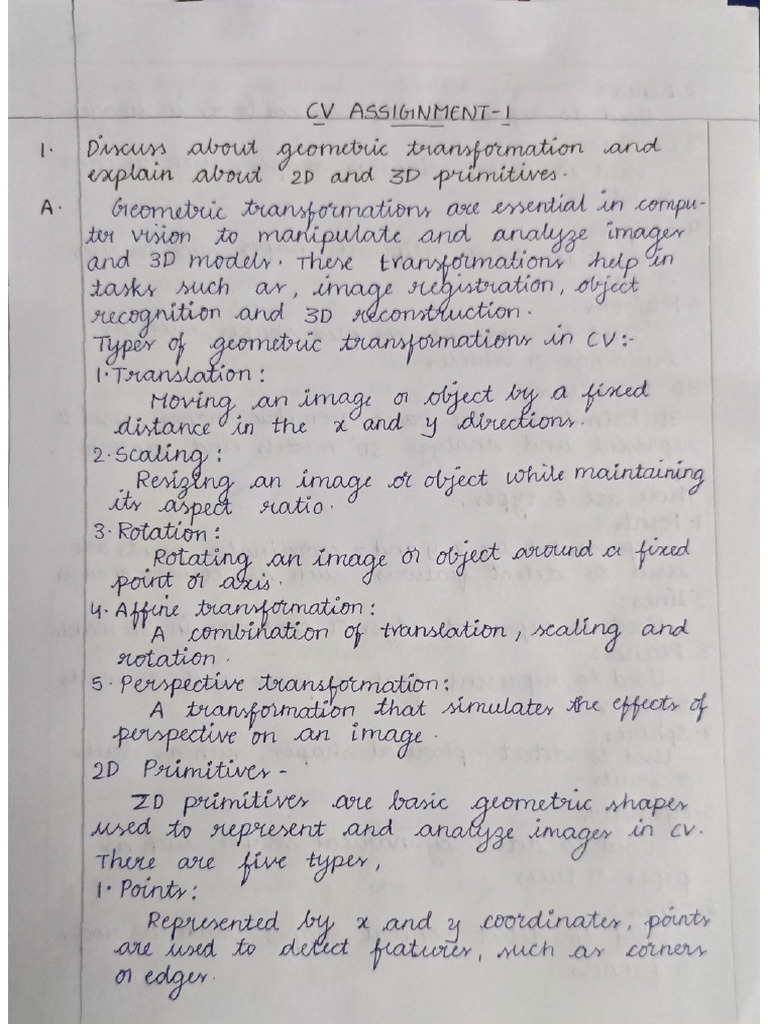 CV ASSIGNMENT-1
1. Discuss about geometric transformation and
explain about 2D and 3D primitives.
A. Geometric transformations are essential in compu-
ter vision to manipulate and analyze images
and 3D models. These transformations help in
tasks such as, image registration, object
recognition and 3D reconstruction.
Types of geometric transformations in CV:-
1. Translation:
Moving an image or object by a fixed
distance in the x and y directions.
2. Scaling:
Resizing an image or object while maintaining
its aspect ratio.
3. Rotation:
Rotating an image or object around a fixed
point or axis.
4. Affine transformation:
A combination of translation, scaling and
rotation.
5. Perspective transformation:
A transformation that simulates the effects of
perspective on an image.
2D Primitives-
2D primitives are basic geometric shapes
used to represent and analyze images in CV.
There are five types,
1. Points:
Represented by x and y coordinates, points
are used to detect features, such as corners
or edges.